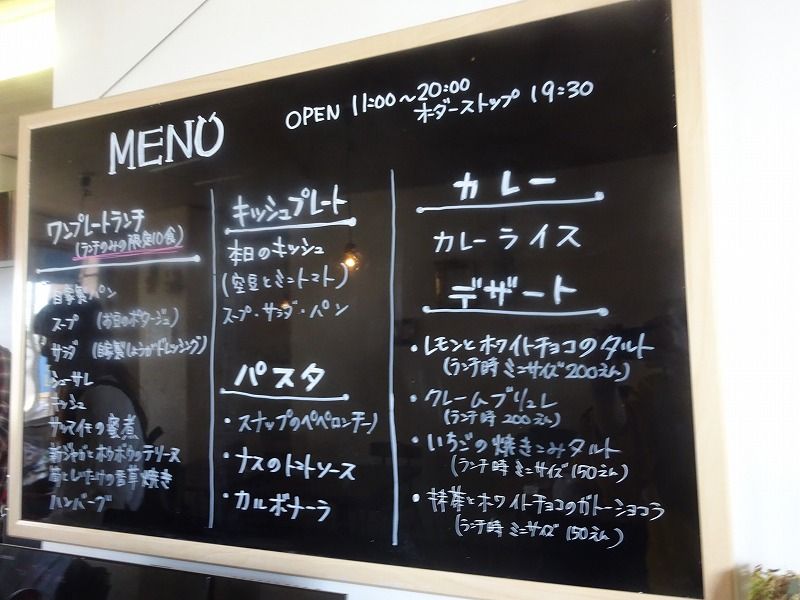 MENU
OPEN 11:00～20:00
オーダーストップ 19:30
ワンプレートランチ
(ランチのみの限定10食)
自家製パン
スープ (お豆のポタージュ)
サラダ (自家製しょうがドレッシング)
シューサレ
キッシュ
サツマイモの蜜煮
新ジャガとホウボウのテリーヌ
筍としいたけの香草焼き
ハンバーグ
キッシュプレート
本日のキッシュ
(空豆とミニトマト)
スープ・サラダ・パン
パスタ
・スナップのペペロンチーノ
・ナスのトマトソース
・カルボナーラ
カレー
カレーライス
デザート
・レモンとホワイトチョコのタルト
(ランチ時 ミニサイズ 200えん)
・クレームブリュレ
(ランチ時 200えん)
・いちごの焼きこみタルト
(ランチ時 ミニサイズ 150えん)
・抹茶とホワイトチョコのガトーショコラ
(ランチ時 ミニサイズ 150えん)